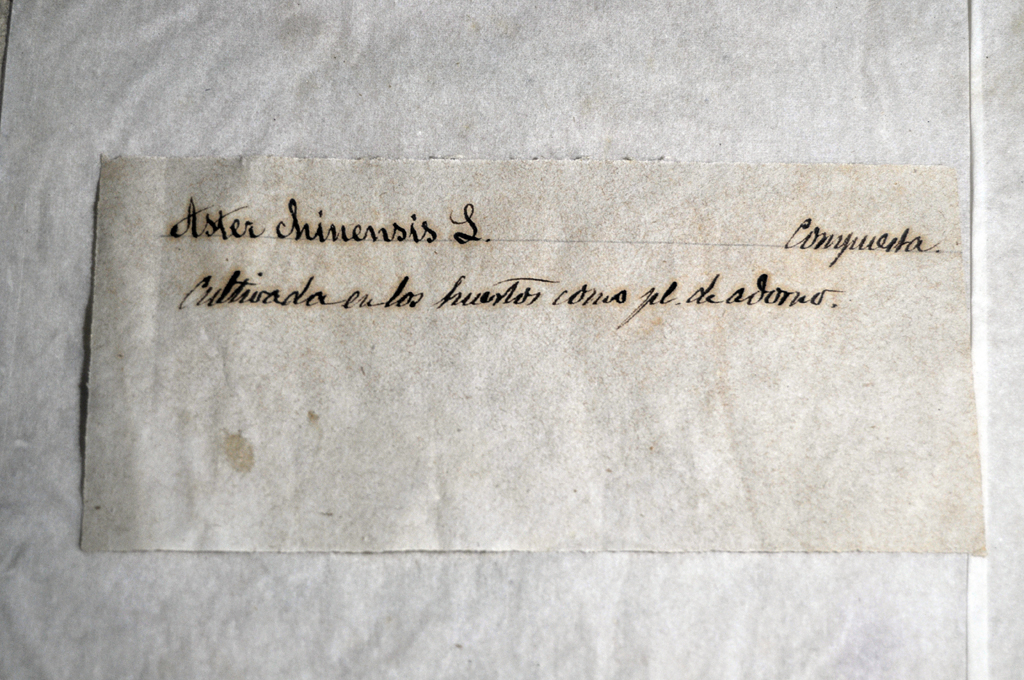 Aster chinensis L. Compuesta.
Cultivada en los huertos como pl. de adorno.